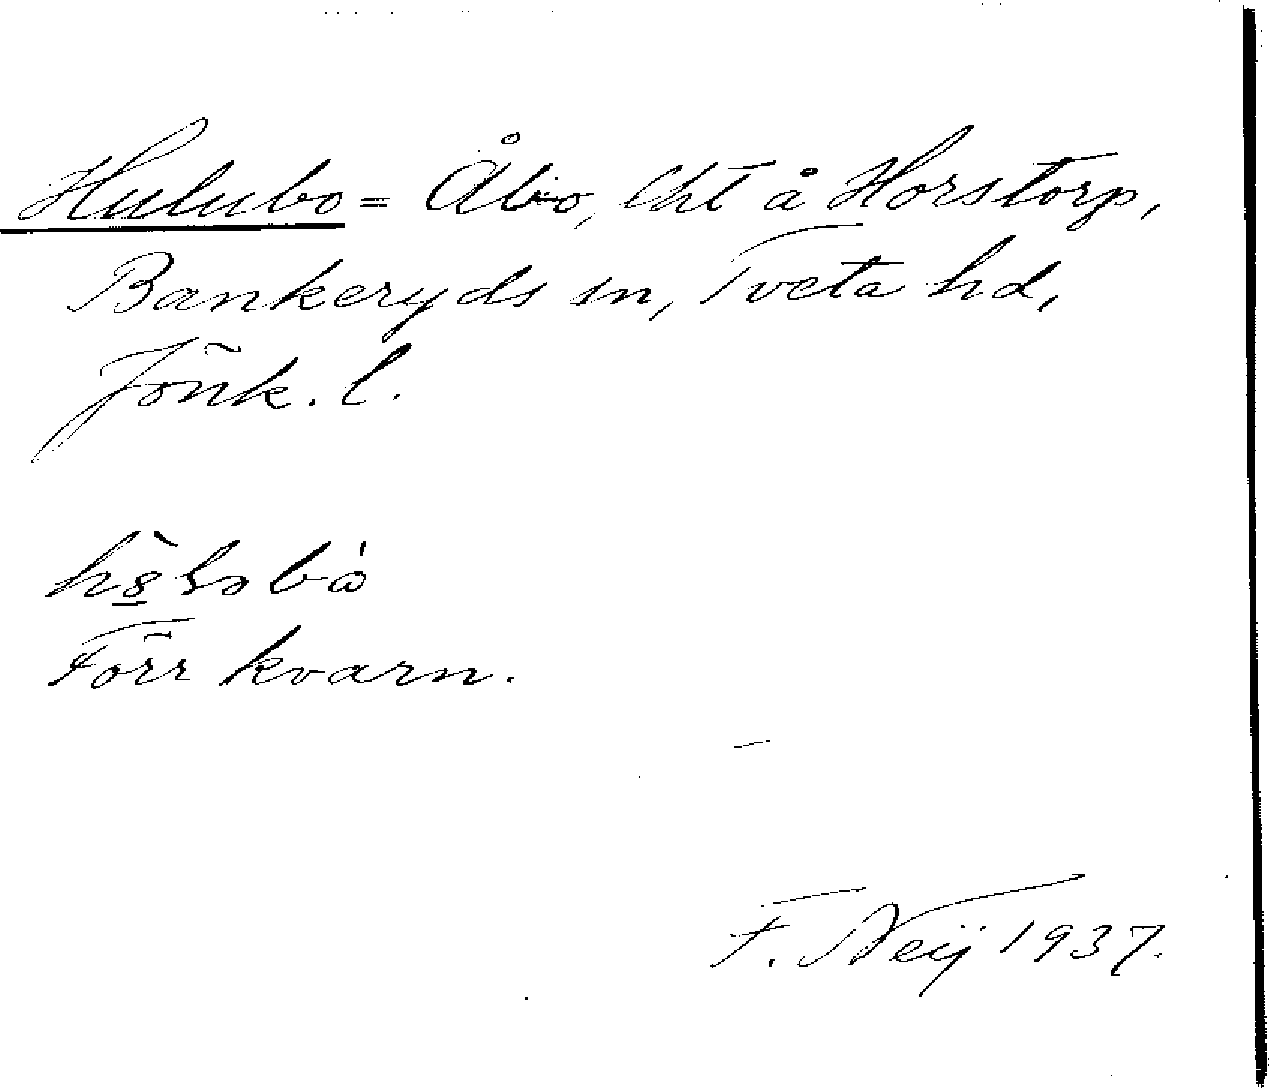 Hulubo = Åbo, lht å Horstorp,
Bankeryds sn, Tveta hd,
Jönk. l.
Förr kvarn.
F. Neij 1937.